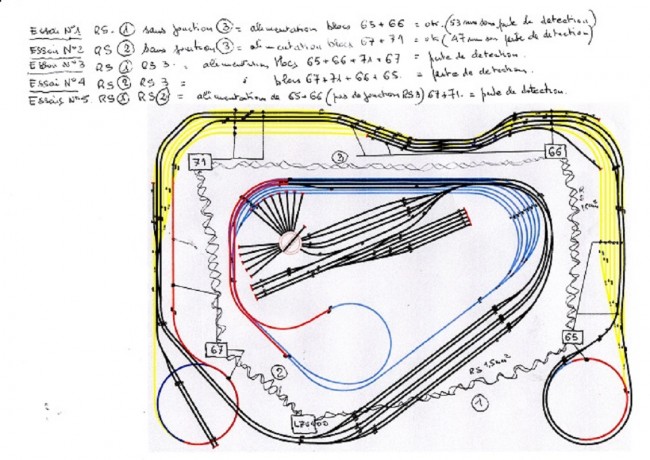 Essai N°1 RS. ① sans jonction ③ = alimentation blocs 65+66 = ok. (53 mn sans perte de detection)
Essai N°2 RS ② sans jonction ③ = alimentation blocs 67+71 = ok (47 mn sans perte de detection)
Essai N°3 RS ① RS 3 = alimentation blocs 65+66+71+67 = perte de detection.
Essai N°4 RS ② RS 3 = blocs 67+71+66+65. = perte de detection.
Essais N°5 RS ① RS ② = alimentation de 65+66 (pas de jonction RS 3) 67+71. = perte de detection.
71
③
66
RS
67
65
②
RS 1,5mm²
①